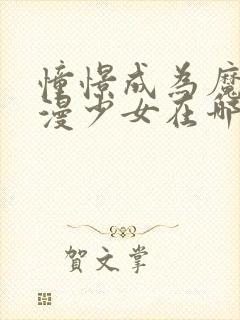 憧憬成为魔
漫少女在哪
賀文掌